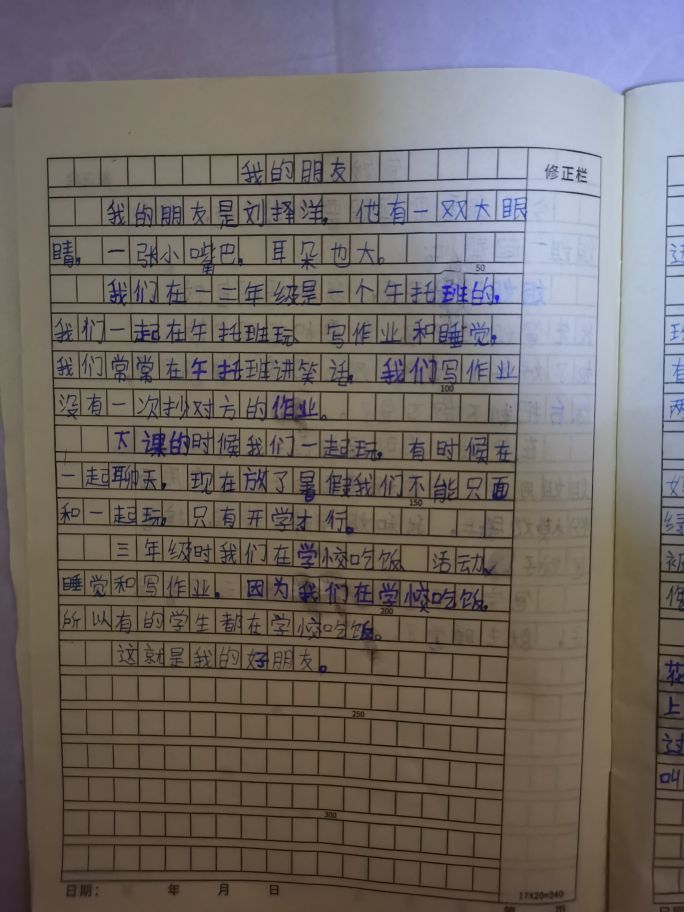 我的朋友
修正栏
我的朋友是刘择洋。他有一双大眼
睛。一张小嘴巴。耳朵也大。
50
我们在一二年级是一个午托班的。
我们一起在午托班玩、写作业和睡觉。
我们常常在午托班讲笑话。我们写作业
100
没有一次抄对方的作业。
下课的时候我们一起玩。有时候在
一起聊天。现在放了暑假我们不能只面
150
和一起玩。只有开学才行。
三年级时我们在学校吃饭、活动、
睡觉和写作业。因为我们在学校吃饭。
200
所以有的学生都在学校吃饭。
这就是我的好朋友。
250
300
日期： 年 月 日
17X20=340